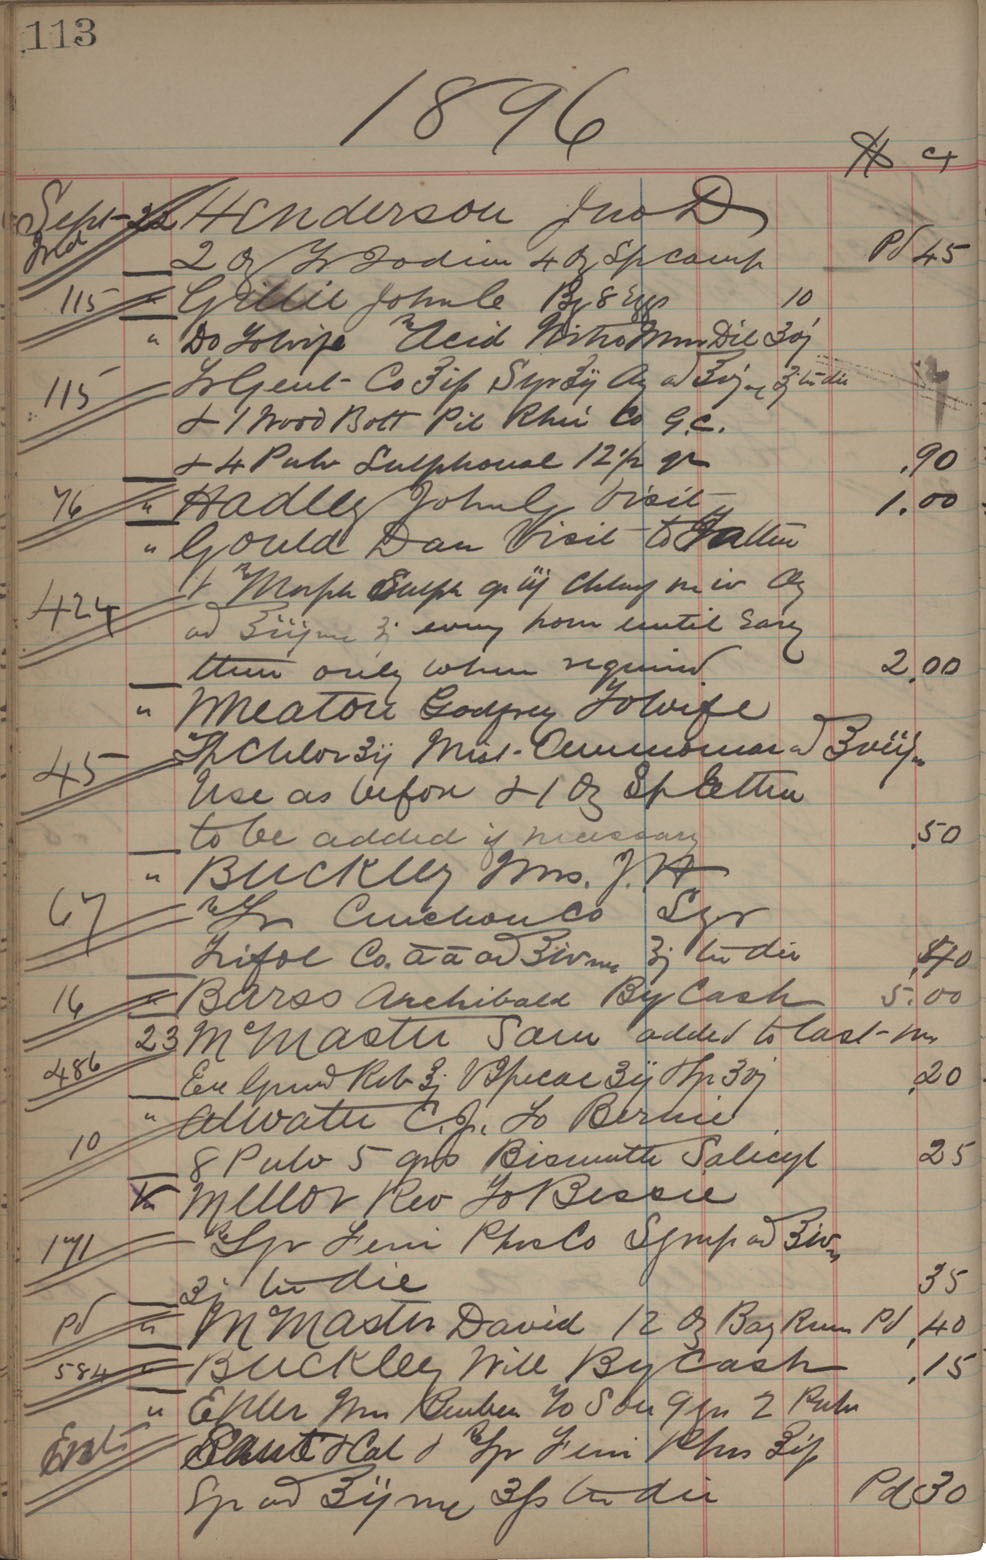 113
1896
$ ct
Sept 22 Henderson Jno D
2 Oz Tr Iodine 4 Oz Sp Camp Pd 45
115 " Gillie John C By 8 Eggs 10
" Do To Wife Acid Nitro Mur Dil ʒvj
115 Tr Gent Co ʒip Syr ʒij Aq ad ʒvj ter die
& 1 Wood Bott Pil Rhei Co G.C.
& 4 Pulv Sulphonal 12½ gr .90
76 " Hadley John G Visit 1.00
" Gould Dan Visit to
424 Morph Sulph gr iij iv Aq
ad ʒiij ʒj every hour until Easy
then only when required 2.00
" Wheaton Godfrey To Wife
45 Chlor ʒij Mist ad ʒviij
Use as before & 1 Oz Sp Ether
to be added if necessary .50
" Buckley Mrs. J. H
67 Tr Cinchon Co Syr
Trifol Co. āā ad ʒiv ʒj ter die .40
16 " Barss Archibald By Cash 5.00
23 McMaster Sam added to last
486 ʒj ʒij ʒvj .20
" Atwater C.J. To Bernie
10 8 Pulv 5 grs Bismuth Salicyl 25
" Mellor Rev To Bessie
171 Syr Ferri Phos Co Syrup ad ʒiv
ʒj ter die 35
Pd " McMaster David 12 Oz Bay Rum Pd .40
584 " Buckley Will By Cash .15
" Epller Wm Reuben To Son 2 Pulv
Sant & Cal & Syr Ferri Phos ʒip
Syr ad ʒij ʒfs ter die Pd 30